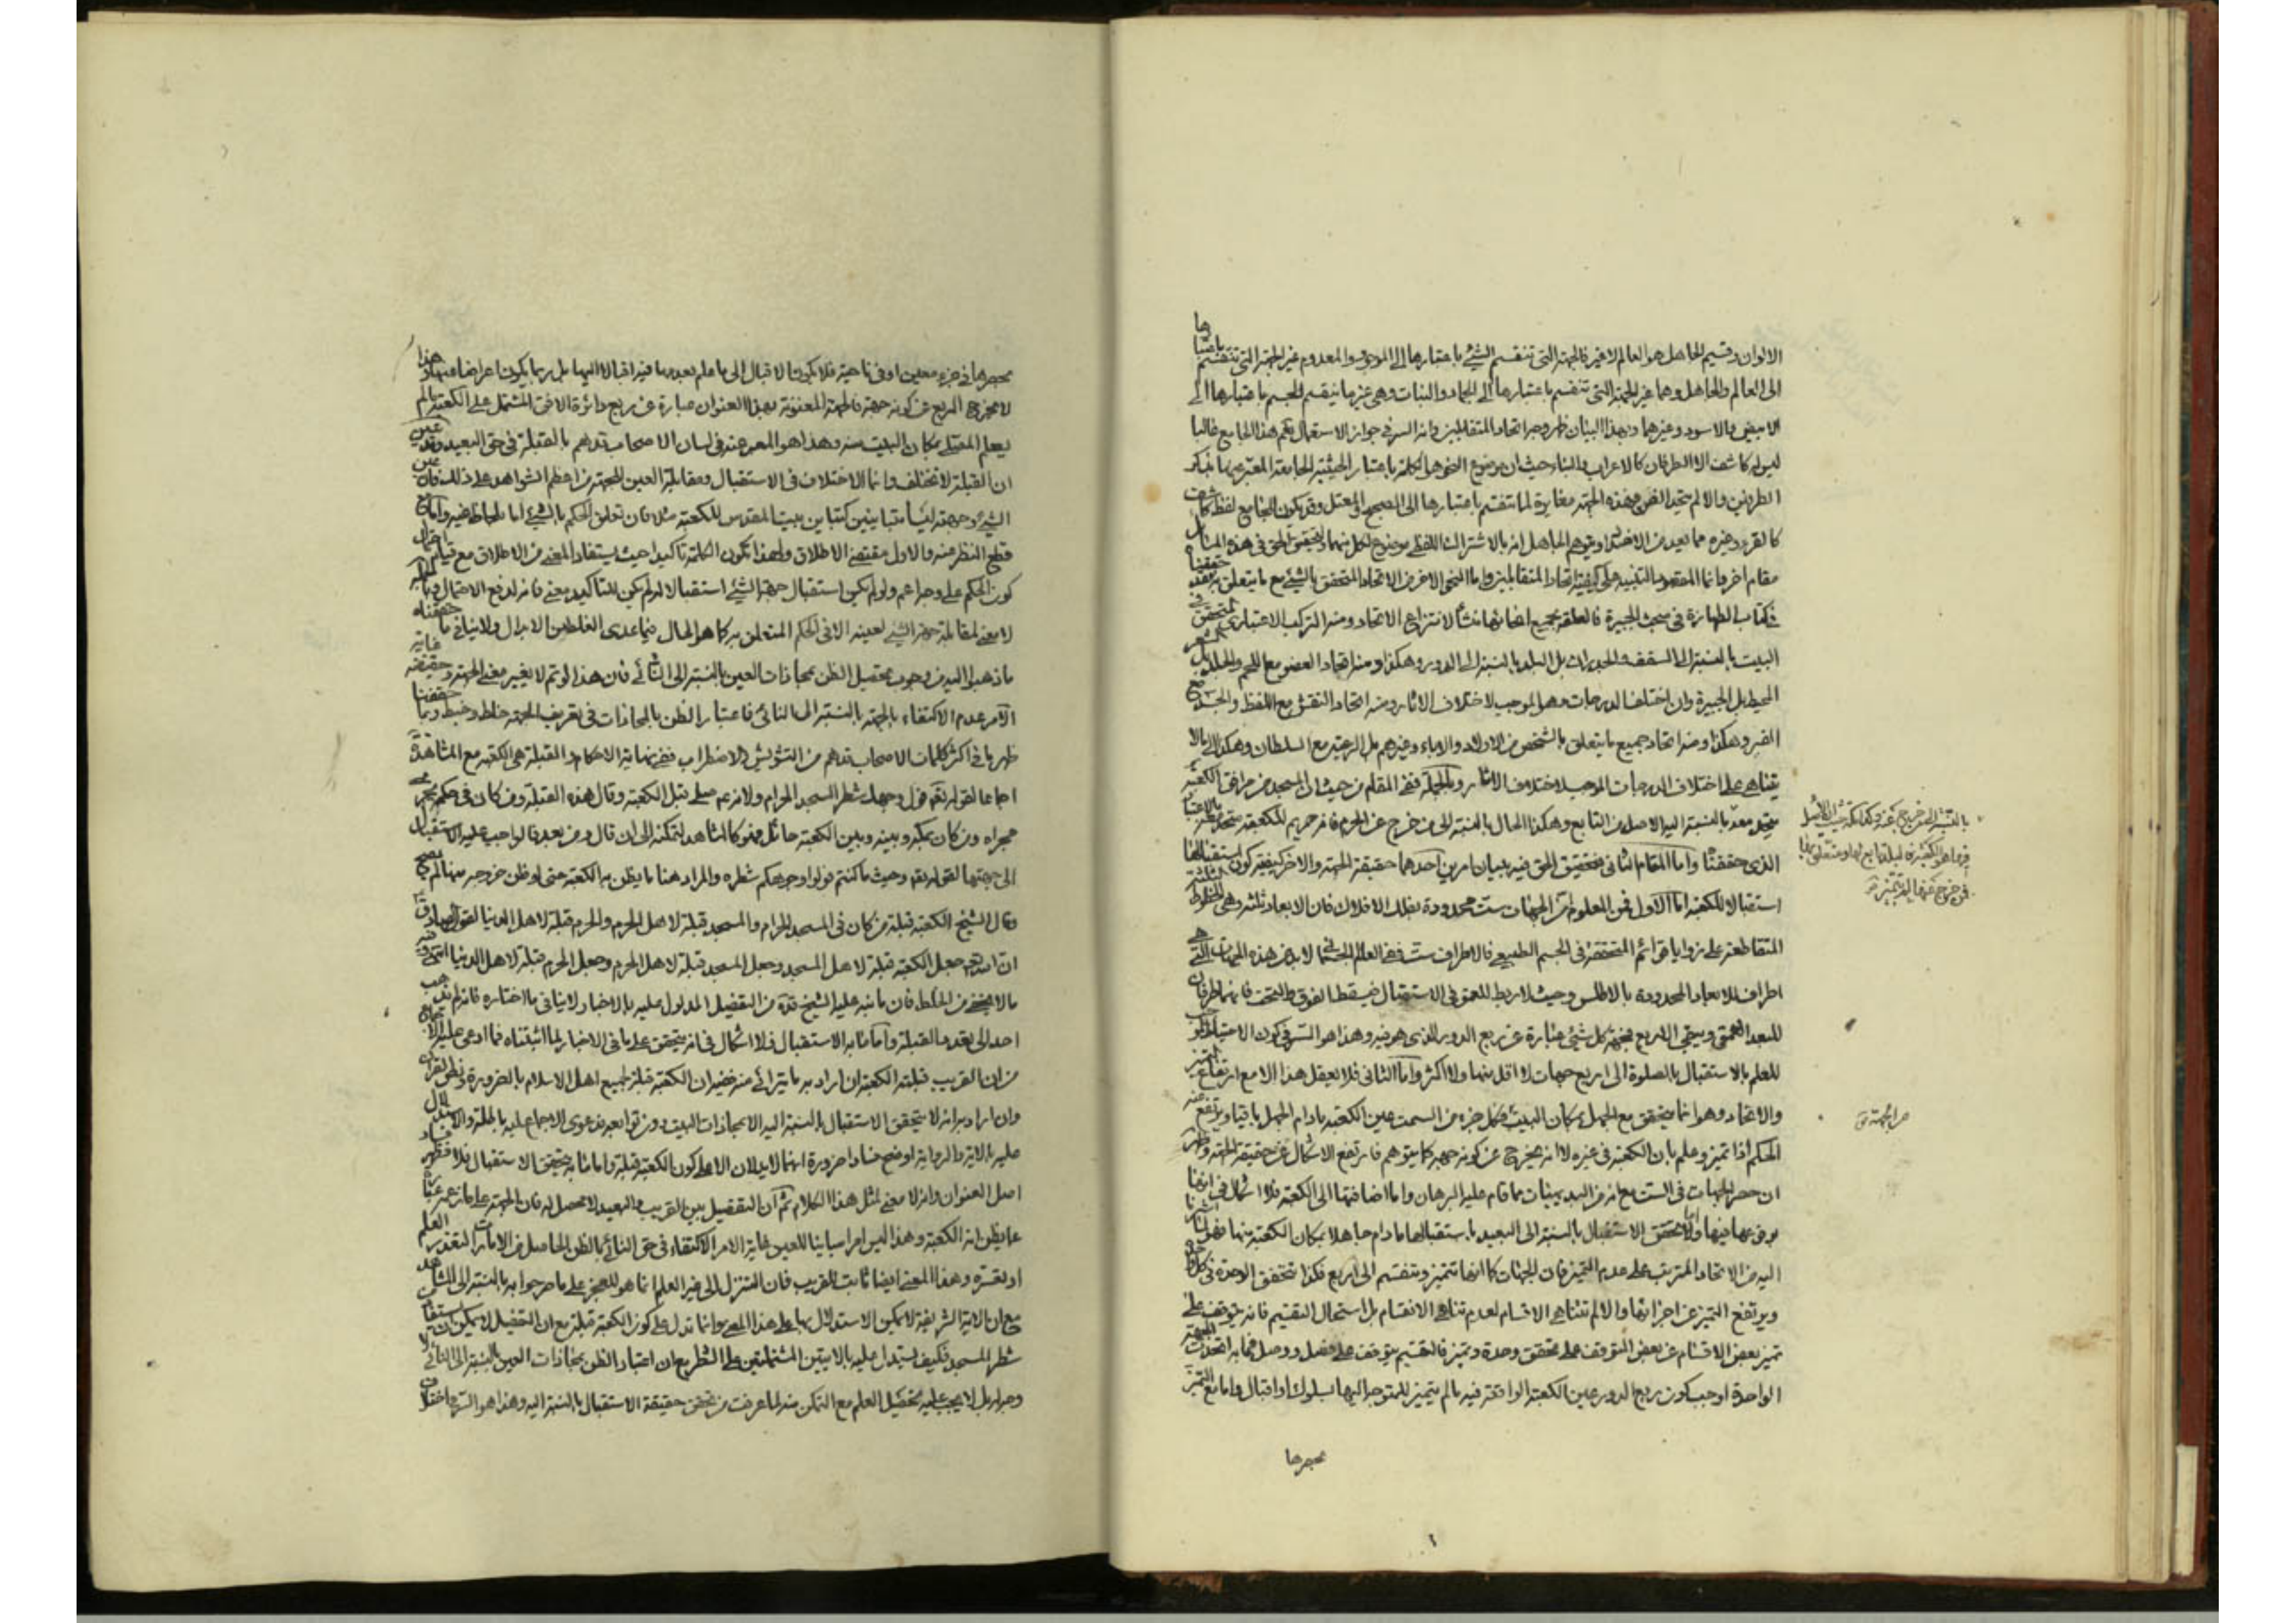 الالوان وقسيم الجاهل هو العالم لا غير فالجهة التى تنقسم الشئ باعتبارها الى الموجود والمعدوم غير الجهة التى تنقسم باعتبارها
الى العالم والجاهل وهما غير الجهة التى تنقسم باعتبارها الى الجماد والنبات وهى غير ما ينقسم الجسم باعتبارها الى
الابيض والاسود وغيرهما وبهذا البيان ظهر وجه اتحاد المتقابلين وانه السر فى جواز الاستعمال بكم هذا الجامع غالبا
ليس له كاشف الا الطرفان كالاعراب والبناء حيث ان موضوع النحو هو الكلمة باعتبار الحيثية الجامعة المعتبر عنها بذكر
الطرفين والا لم يتحد الفن وهذه الجهة مغايرة لما تنقسم باعتبارها الى الصحيح والمعتل وقد يكون للجامع لفظ كاشف
كالقرء وغيره مما يعد من الاضداد ويتوهم الجاهل انه بالاشتراك اللفظى موضوع لكل منهما ولتحقيق الحق فى هذه المسائل
مقام اخر وانما المقصود التنبيه على كيفية اتحاد المتقابلين واما النحو الاخر من الاتحاد المتحقق بالشئ مع ما يتعلق به فقد حققناه
فى كتاب الطهارة فى مبحث الجبيرة فالعلقة بجميع انحائها منشأ لانتزاع الاتحاد ومنه التركب الاعتبارى المتحقق فى
البيت بالنسبة الى السقف والجدران بل البلد بالنسبة الى الدور وهكذا ومنه اتحاد العضو مع اللحم والجلد بل الشعر
المحيط بل الجبيرة وان اختلفت الدرجات وهو الموجب لاختلاف الاثار ومنه اتحاد النقش مع اللفظ والجسد مع
القبر وهكذا ومنه اتحاد جميع ما يتعلق بالشخص من الاولاد والاباء وغيرهم بل الرعية مع السلطان وهكذا الى ما لا
يتناهى على اختلاف الدرجات الموجب لاختلاف الاثار وبالجملة ففى المقام من حيث ان المسجد من مرافق الكعبة
يتحد معه بالنسبة اليه الاصل من التابع وهكذا الحال بالنسبة الى من خرج عن الحرم فانه حريم للكعبة متحد معه بالاعتبار
الذى حققناه واما المقام الثانى فتحقيق الحق فيه ببيان امرين احدهما حقيقة الجهة والاخر كيفية كون استقبالها
استقبالا للكعبة اما الاول فمن المعلوم ان الجهات ست محدودة بفلك الافلاك فان الابعاد ثلثة وهى الخطوط الثلثة
المتقاطعة على زوايا قوائم المتحققة فى الجسم الطبيعى فالاطراف ست ففى العالم الجسمانى لا بد من هذه الجهات التى هى
اطراف للابعاد المحدودة بالاطلس وحيث لا ربط للعمق فى الاستقبال فيسقط الفوق والتحت فانهما طرفان
للبعد العمقى ويبقى الاربع فجهة كل شئ عبارة عن ربع الدور الذى هو فيه وهذا هو السر فى كون الاحتياط
للعلم بالاستقبال بالصلوة الى اربع جهات لا اقل منها ولا اكثر واما الثانى فلا يعقل هذا الا مع ارتفاع التميز
والاتحاد وهو انما يتحقق مع الجهل بمكان البيت فكل جزء من السمت عين الكعبة ما دام الجهل باقيا ويرتفع عنه
الحكم اذا تميز وعلم بان الكعبة فى غيره لا انه يخرج عن كونه جهة كما يتوهم فارتفع الاشكال عن حقيقة الجهة وظهر
ان حصر الجهات فى الست مع انه من البديهيات مما قام عليه البرهان واما اضافتها الى الكعبة فلا اشكال فى انها
بوقوعها فيها واما تحقق الاستقبال بالنسبة الى البعيد باستقبالها ما دام جاهلا بمكان الكعبة منها فهو لما اشرنا
اليه من الاتحاد المترتب على عدم التميز فان الجهات كما انها تتميز وتنقسم الى اربع فكذا تتحقق الوحدة فى كل
ويرتفع التميز عن اجزائها والا لم تتناه الاقسام لعدم تناهى الانقسام بل استحال التقسيم فانه يتوقف على
تميز بعض الاقسام عن بعض المتوقف على تحقق وحدة وتميز فالتقسيم يتوقف على فصل ووصل فما به اتحدت الجهة
الواحدة اوجب كون ربع الدور عين الكعبة الواقعة فيه ما لم يتميز للمتوجه اليها بسلوك او اقبال واما مع التميز
بحصرها
جهة الجهة
بحصرها فى جزء معين او فى ناحية فلا يكون الاقبال الى ما علم بعدمها فيه اقبالا اليها بل ربما يكون اعراضا عنها وهذا
لا يخرج الربع عن كونه جهة فالجهة المعنونة بهذا العنوان عبارة عن ربع دائرة الافق المشتمل على الكعبة ما لم
يعلم المصلى بمكان البيت منه وهذا هو المعبر عنه فى لسان الاصحاب قدهم بالقبلة فى حق البعيد وقد تبين
ان القبلة لا تختلف وانما الاختلاف فى الاستقبال ومقابلة العين للجهة من اعظم الشواهد على ذلك فان عين
الشئ وجهته ليسا متباينين كتباين بيت المقدس للكعبة مثلا فان تعلق الحكم بالشئ اما بلحاظ غيره واما مع
قطع النظر عنه والاول مقتضى الاطلاق ولهذا تكون الكلمة تأكيدا حيث يستفاد المعنى من الاطلاق مع قيام احتمال
كون الحكم على وجه اعم ولو لم يكن استقبال جهة الشئ استقبالا له لم يكن للتأكيد معنى فانه لدفع الاحتمال
لا معنى لمقابلة جهة الشئ لعينه الا فى الحكم المتعلق به كما هو الحال فيما عدى الغلط من الابدال ولا ينافى ما حققناه
ما ذهبوا اليه من وجوب تحصيل الظن بمحاذات العين بالنسبة الى النائى فان هذا لو تم لا يغير معنى الجهة وحقيقته غاية
الامر عدم الاكتفاء بالجهة بالنسبة الى النائى فاعتبار الظن بالمحاذات فى تعريف الجهة خلط وخبط وبما حققنا
ظهر ما فى اكثر كلمات الاصحاب قدهم من التشويش والاضطراب ففى نهاية الاحكام والقبلة هى الكعبة مع المشاهدة
اجماعا لقوله تعم فول وجهك شطر المسجد الحرام ولانه عم صلى قبل الكعبة وقال هذه القبلة ومن كان فى حكمه يجرى
مجراه ومن كان بمكة وبينه وبين الكعبة حائل فهو كالمشاهد لتمكنه الى ان قال ومن بعد فالواجب عليه الاستقبال
الى جهتها لقوله تعم وحيث ما كنتم فولوا وجوهكم شطره والمراد هنا ما يظن به الكعبة حتى لو ظن خروجه عنها لم يصح
وقال الشيخ الكعبة قبلة من كان فى المسجد الحرام والمسجد قبلة لاهل الحرم والحرم قبلة لاهل الدنيا لقول الصادق
ان الله تعم جعل الكعبة قبلة لاهل المسجد وجعل المسجد قبلة لاهل الحرم وجعل الحرم قبلة لاهل الدنيا انتهى وفيه
ما لا يخفى من الخلط فان ما نبه عليه الشيخ قده من التفصيل المدلول عليه بالاخبار لا ينافى ما اختاره فانه لم يذهب
احد الى تعدد القبلة واما ما به الاستقبال فلا اشكال فى انه يتحقق على ما فى الاخبار لما اثبتناه فما ادعى عليه الاجماع
من ان القريب قبلته الكعبة ان اراد به ما يترائى منه ففيه ان الكعبة قبلة لجميع اهل الاسلام بالضرورة ونطق القران
وان اراد به انه لا يتحقق الاستقبال بالنسبة اليه الا بمحاذات البيت دون توابعه فدعوى الاجماع عليه باطلة والاستدلال
عليه بالاية والرواية اوضح فسادا ضرورة انهما لا يدلان الا على كون الكعبة قبلة واما ما به يتحقق الاستقبال فلا فظهر فساد
اصل العنوان وانه لا معنى لمثل هذا الكلام ثم ان التفصيل بين القريب والبعيد لا محصل له فان الجهة على ما زعمه عبارة
عما يظن انه الكعبة وهذا ليس امرا مباينا للعين غاية الامر الاكتفاء فى حق النائى بالظن الحاصل من الامارات لتعذر العلم
او تعسره وهذا المعنى ايضا ثابت للقريب فان التنزل الى غير العلم انما هو للعجز على ما صرحوا به بالنسبة الى المشاهد
مع ان الاية الشريفة لا يمكن الاستدلال بها على هذا المعنى وانما تدل على كون الكعبة قبلة مع ان التفصيل لا يمكن ان يستفاد
شطر المسجد فكيف يستدل عليه بالايتين المشتملتين على الشطر مع ان اعتبار الظن بمحاذات العين بالنسبة الى النائى لا
وجه له بل لا يجب عليه تحصيل العلم مع التمكن منه لما عرفت من تحقق حقيقة الاستقبال بالنسبة اليه وهذا هو السر فى اختلاف